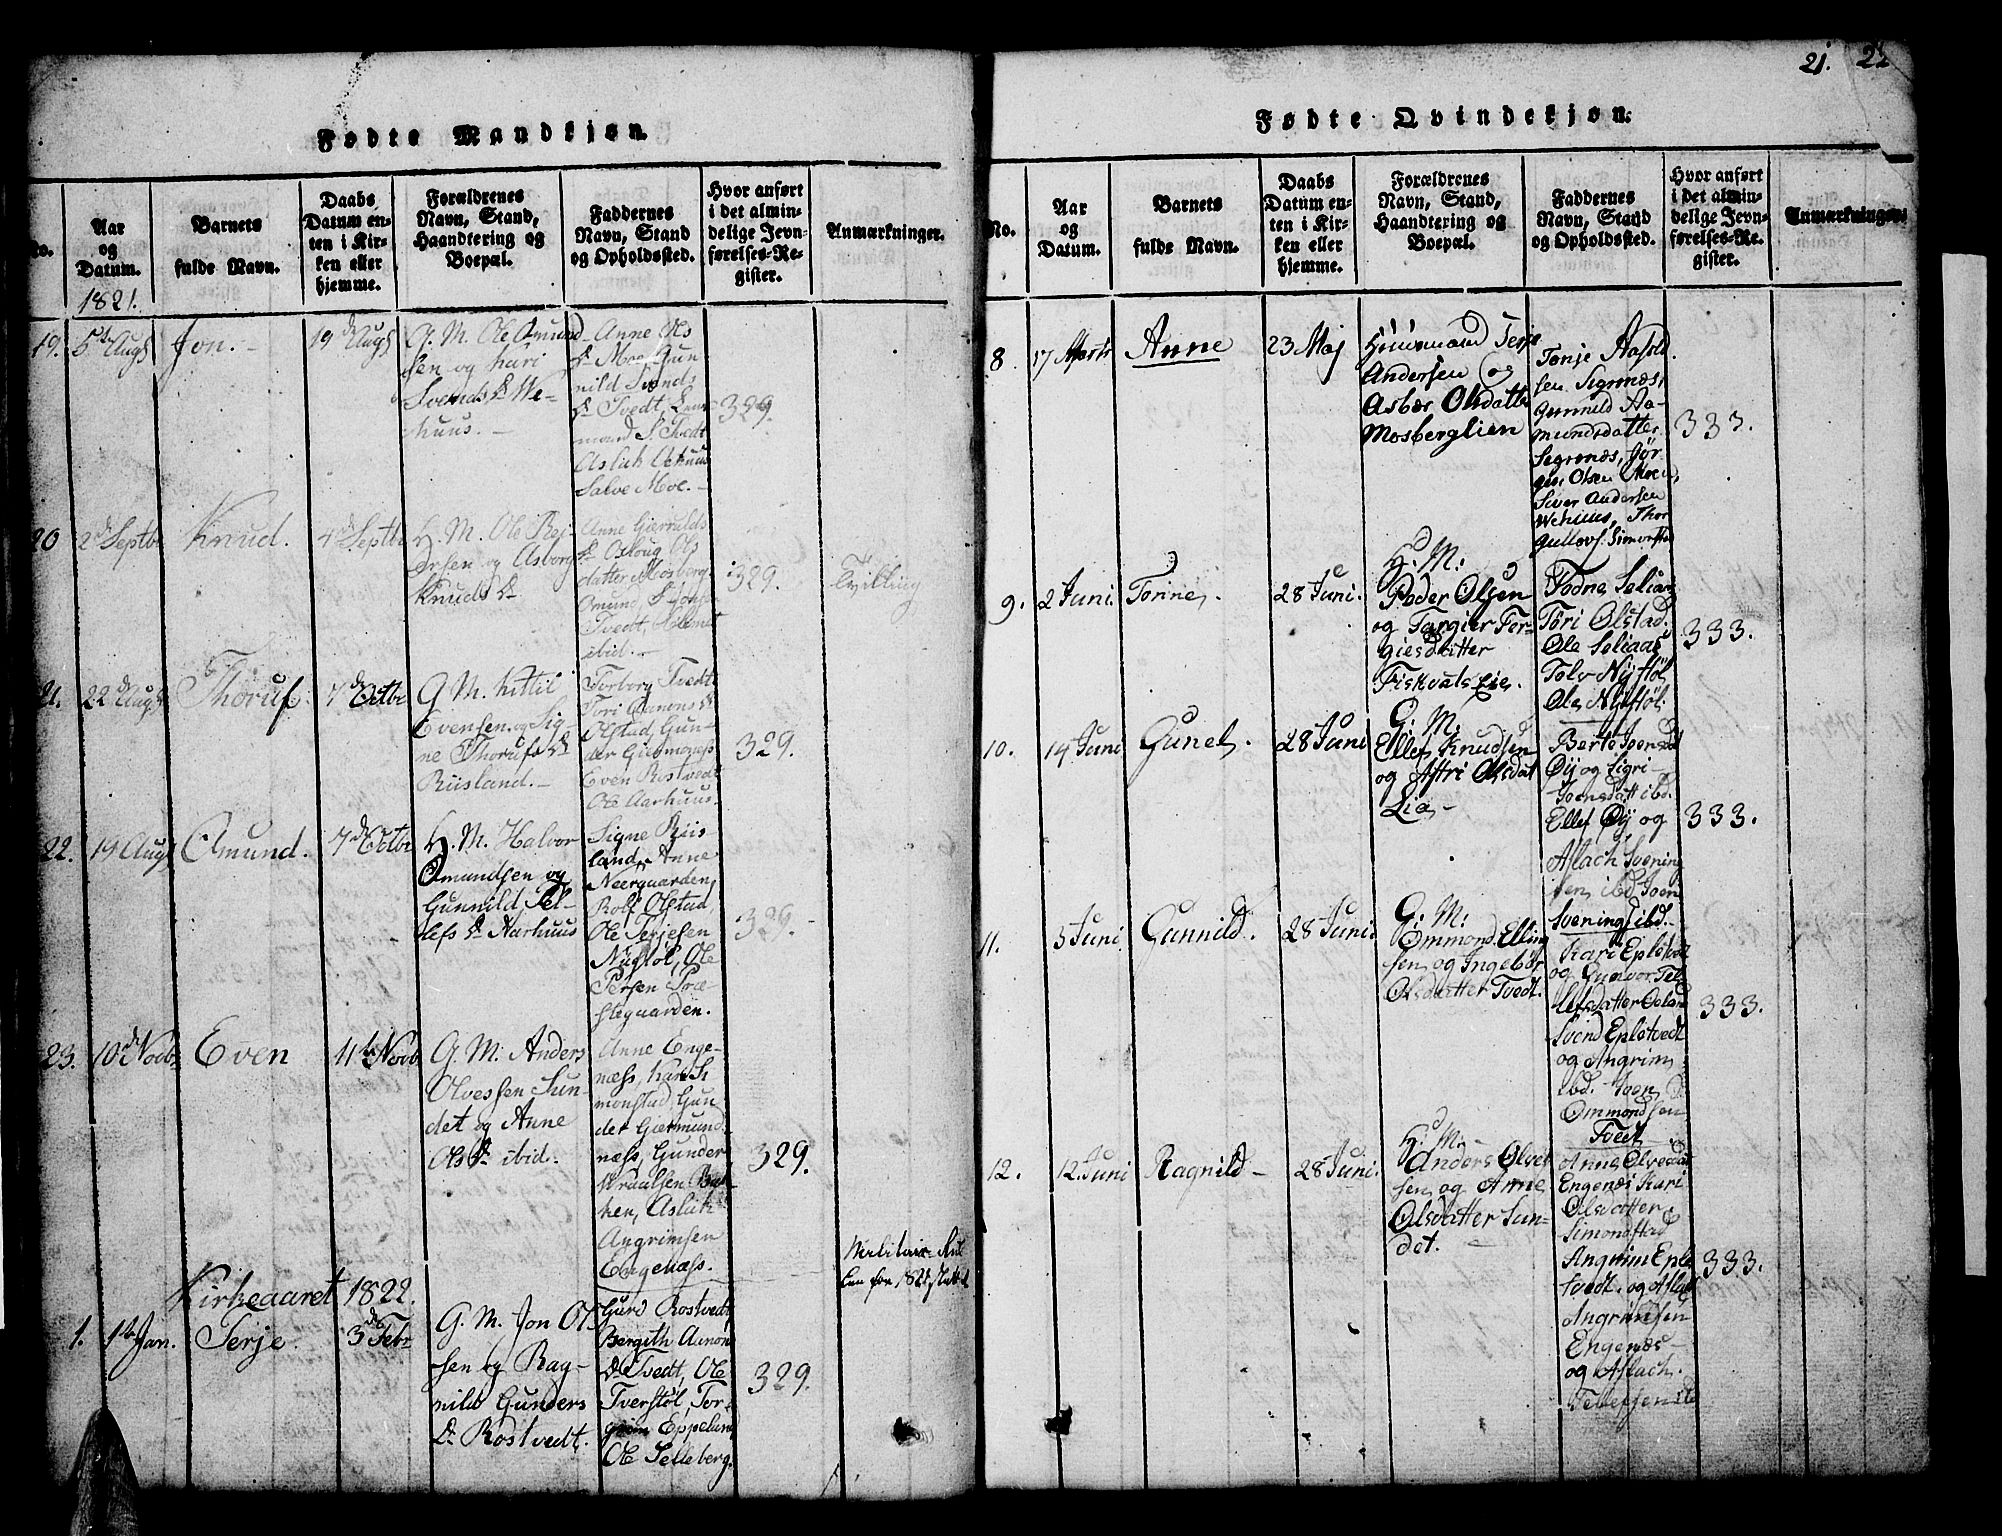 21. 22
Fødte Mandkjøn.
No.
Aar og Datum.
Barnets fulde Navn.
Daabs Datum enten i Kirken eller hjemme.
Forældrenes Navn, Stand, Haandtering og Boepæl.
Faddernes Navn, Stand og Opholdssted.
Hvor anført i det almindelige Jevnførelses-Register.
Anmærkninger.
1821.
19. 5te Augs Jon. 19de Augs
G. M. Ole Omund
sen og Kari
Svends Dr We-
huus.
Anne Ols
Dr Moe, Gun
nild Svends
Dr Tvedt,
mand S. Tvedt
Aslak
Salve Moe.
329.
20 2de Septbr Knud. 4de Septbr
H. M. Ole Rej-
ersen og Asborg
Knuds Dr
Anne Gierulds
Dr Oslaug Ols
datter Mosberg
Omund S.
Tvedt,
ibid.
329.
Tvilling
21. 22de Augs Thoruf. 7de Octbr
G. M. Kittil
Evensen og Sig-
ne Thorufs Dr
Riisland.
Torborg Tvedt
Tori Aanons Dr
Olstad, Gun-
der Giermonæss
Even Rostvedt
Ole Aarhuus.
329.
22. 19 Augs Omund. 7de Octbr
H. M. Halvor
Omundsen og
Gunnild Tel-
lefs Dr Aarhuus
Signe Riis
land, Anne
Neerguarden
Rolf Olstad,
Ole Terjesen
Nystøl, Ole
Persen Præ-
steguarden.
329.
23. 10de Novbr Even 11te Novb
G. M. Anders
Olvessen Sun-
det og Anne
Ols Dr ibid.
Anne Enge-
næss, Kari Si
monstad, Gun
der Giermund
næss, Gunder
Haraalsen Bak-
ken, Aslak
Angrimsen
Engenæss.
329.
Militair Rul
len for 1821 sluttet
Kirkeaaret 1822.
1. 1te Jan. Terje. 3de Febr
G. M. Jon Ol
sen og Rag-
nild Gunders
Dr Rostvedt.
Gurd Rostvedt,
Bergith Aanon
Dr Tvedt, Ole
Tverstøl, Tor-
grim Eppelund
Ole Selleberg.
329.
Fødte Qvindekjøn.
No.
Aar og Datum.
Barnets fulde Navn.
Daabs Datum enten i Kirken eller hjemme.
Forældrenes Navn, Stand, Haandtering og Boepæl.
Faddernes Navn, Stand og Opholdssted.
Hvor anført i det almindelige Jevnførelses-Register.
Anmærkninger.
8. 17 Marts Anne 23 Maj
Huusmand Terje
Andersen og
Asbør Olsdatter
Mosberglien
Tonje Aasold
sen Sigenæs,
Gunnild Aa-
mundsdatter
Segenæs, Jør
gen Olsen Moe,
Siver Andersen
Wehuus, Thor
Gullovs. Simonstad
333.
9. 2 Juni. Torine. 28 Juni.
H. M:
Peder Olsen
og Targier Ter-
giesdatter
Fiskvats Eie.
Todne Seliaas
Tori Olstad.
Ole Seliaas
Tolv Nystøl
Ole Nystøl.
333.
10. 14 Juni Gunel. 28 Juni
G. M:
Ellef Knudsen
og Astri Olsdat
Lia
Berte Joensdat
Øy og Sigri
Joensdatt ibd.
Ellef Øy og
Aslach Svening
sen ibd Joen
Svenings ibd.
333.
11. 5 Juni Gunnild. 28 Juni.
G: M:
Ommond Elling
sen og Ingebor
Olsdatter Tvedt.
Kari Epletvet
og Gunvor Tel
lefsdatter Oeland
Svend Epletvedt
og Angrim
ibd. Joen
Ommondsen
Tvedt
333.
12. 12. Juni Ragnild 28 Juni.
H. M:
Anders Olvet
sen og Anne
Olsdatter Sun-
det.
Anne Olvesdat
Engenæs Kari
Olsdatter
Simonstad
Angrim Eple
tvedt. og Aslak
Angrimsen
Engenæs
og Aslach
Tellefsen ibd
333.